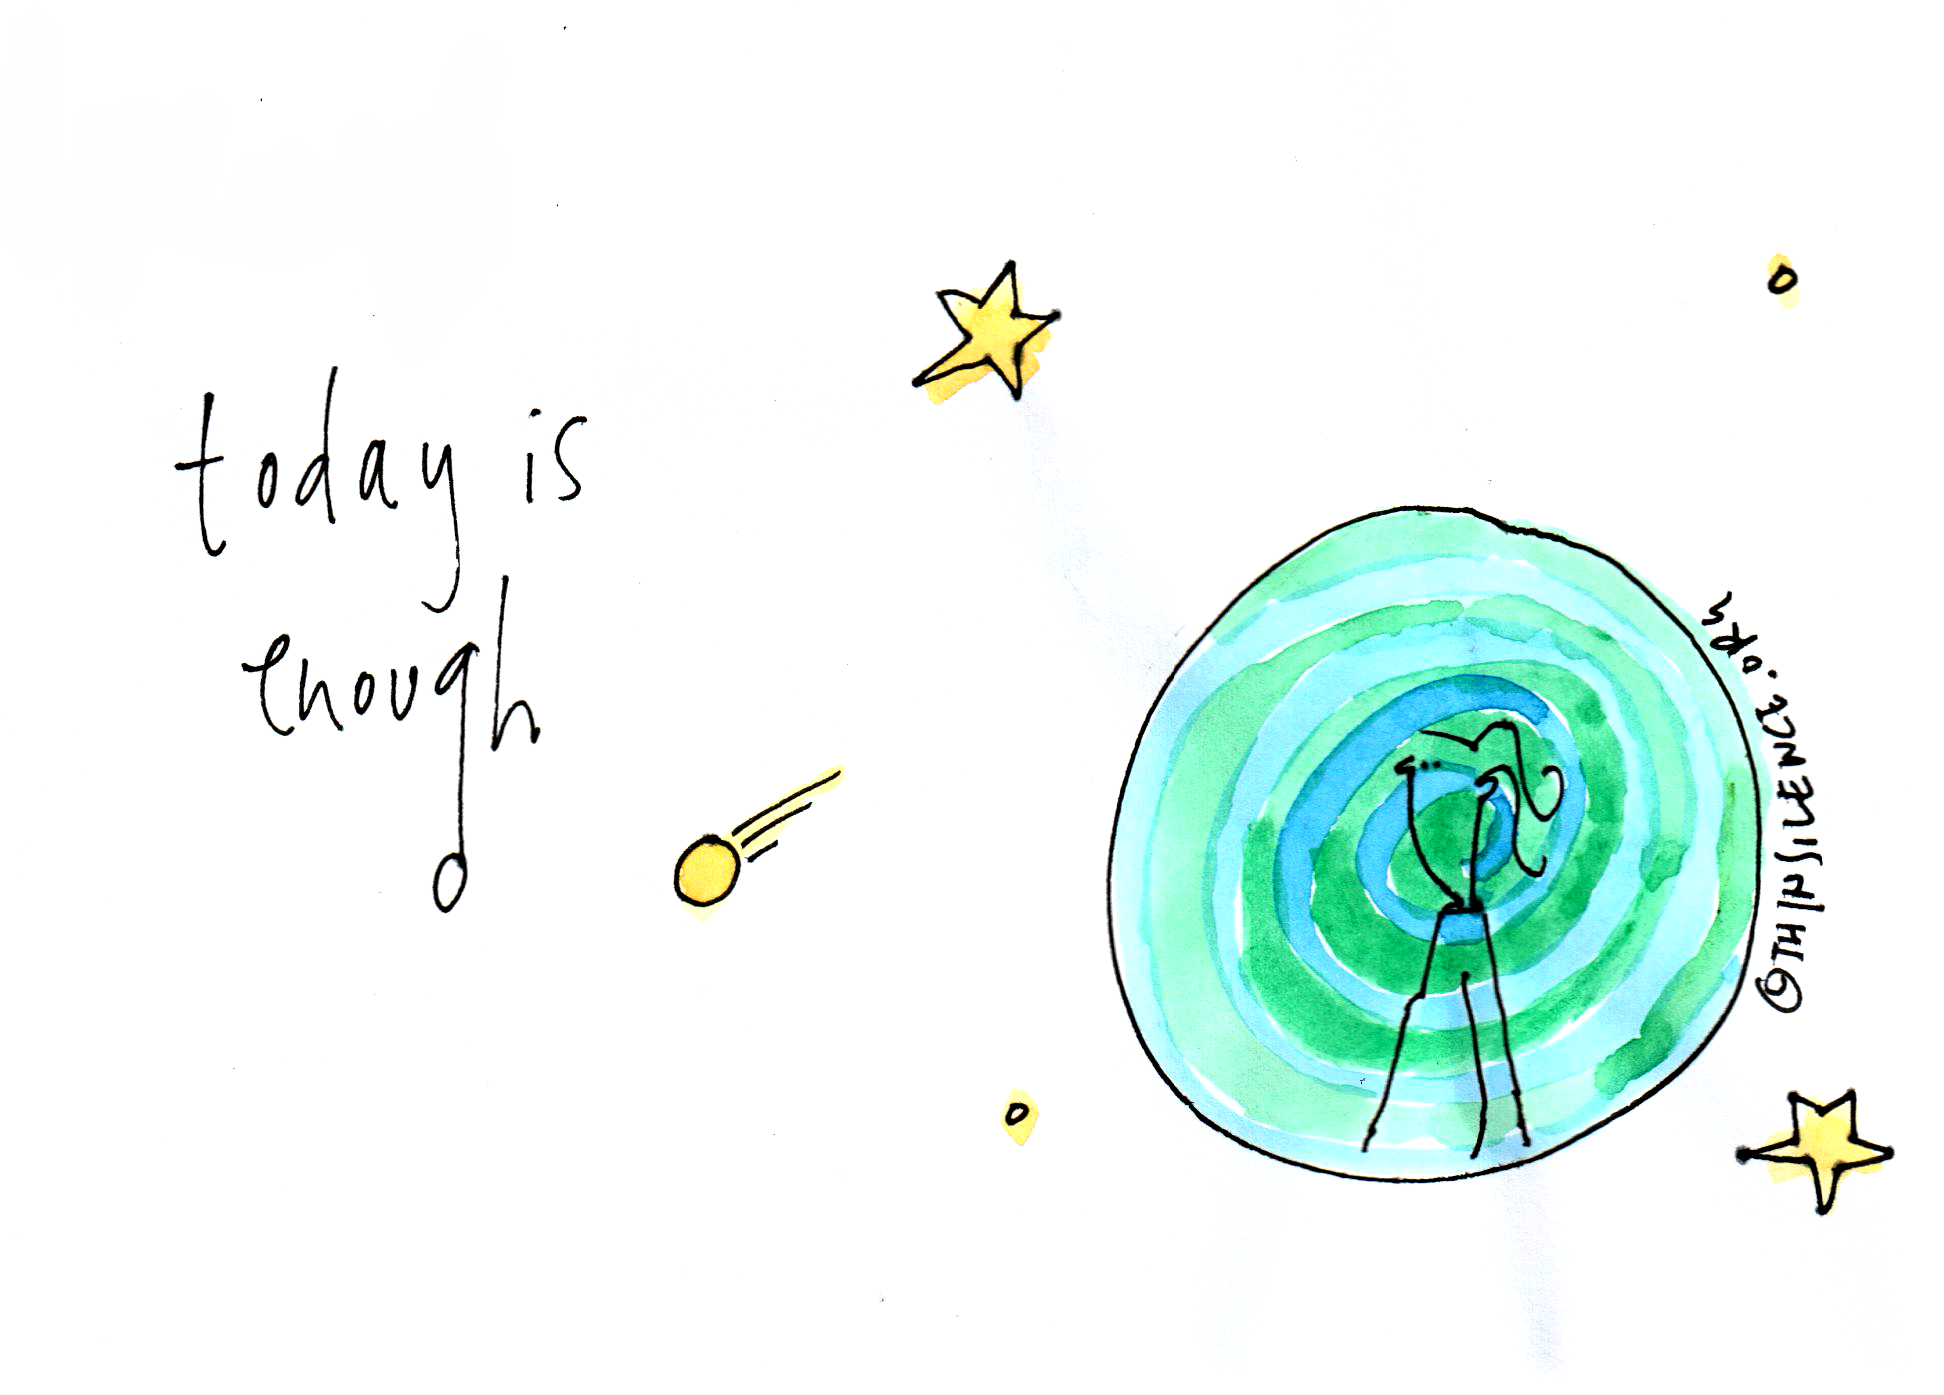 today is
enough
©THINSILENCE.ORG